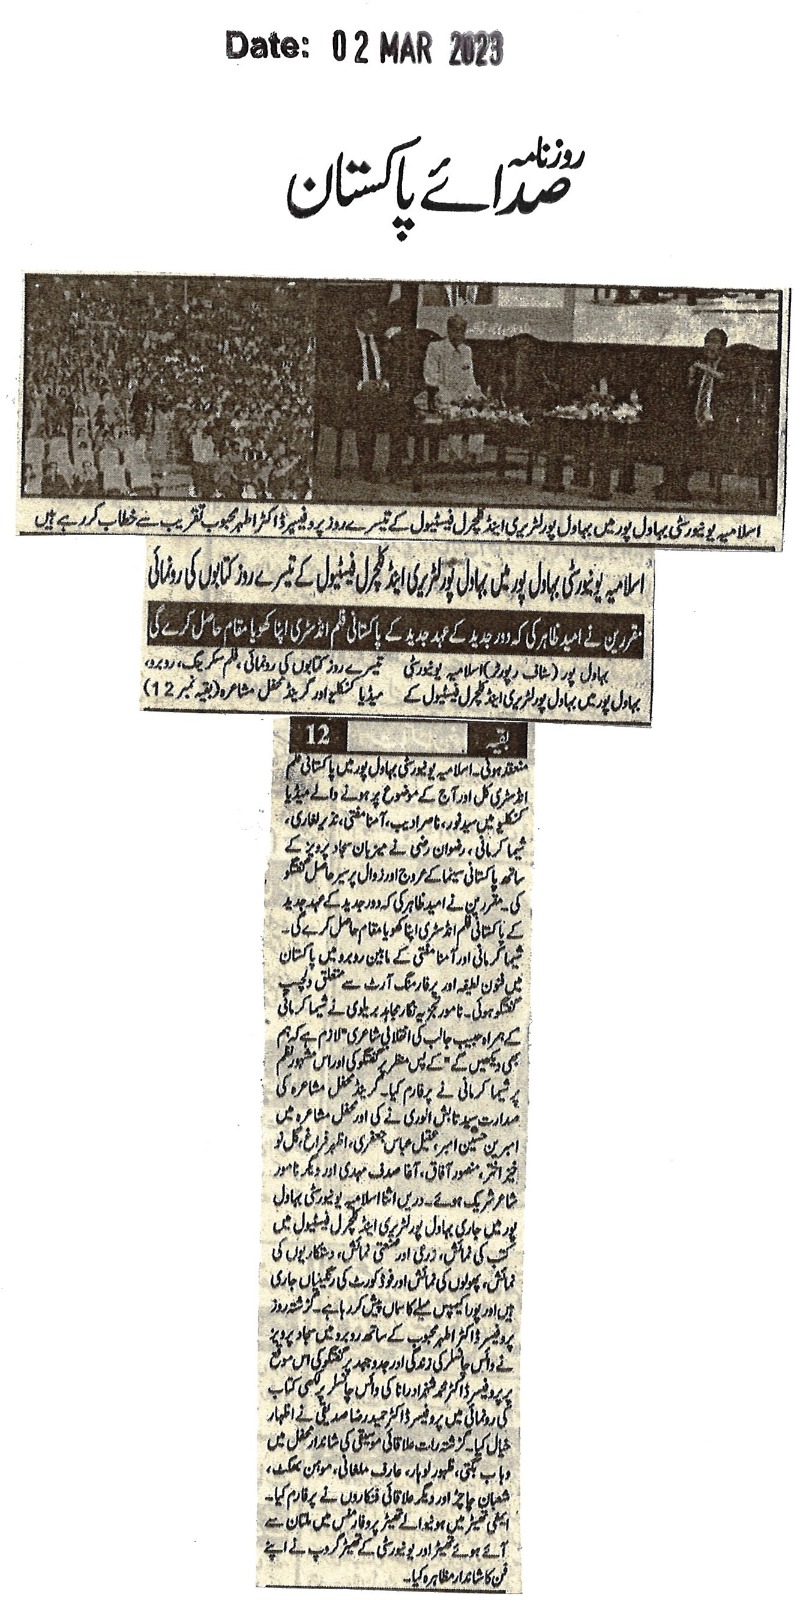 Date: 02 MAR 2023
روزنامہ
صدائے پاکستان
اسلامیہ یونیورسٹی بہاول پور میں بہاول پور لٹریری اینڈ کلچرل فیسٹیول کے تیسرے روز پروفیسر ڈاکٹر اطہر محبوب تقریب سے خطاب کر رہے ہیں
اسلامیہ یونیورسٹی بہاول پور میں بہاول پور لٹریری اینڈ کلچرل فیسٹیول کے تیسرے روز کتابوں کی رونمائی
مقررین نے امید ظاہر کی کہ دور جدید کے عہد جدید کے پاکستانی فلم انڈسٹری اپنا کھویا مقام حاصل کرے گی
بہاول پور (سٹاف رپورٹ) اسلامیہ یونیورسٹی
بہاول پور میں بہاول پور لٹریری اینڈ کلچرل فیسٹیول کے
تیسرے روز کتابوں کی رونمائی، فلم سکریننگ، روبرو،
میڈیا کنکلیو اور گرینڈ محفل مشاعرہ (بقیہ نمبر 12)
بقیہ 12
منعقد ہوئی۔ اسلامیہ یونیورسٹی بہاول پور میں پاکستانی فلم
انڈسٹری کل اور آج کے موضوع پر ہونے والے میڈیا
کنکلیو میں سید نور، ناصر ادیب، آمنا مفتی، نذیر لغاری،
شیما کرمانی، رضوان رضی نے میزبان سجاد پرویز کے
ساتھ پاکستانی سینما کے عروج اور زوال پر سیر حاصل گفتگو
کی۔ مقررین نے امید ظاہر کی کہ دور جدید کے عہد جدید
کے پاکستانی فلم انڈسٹری اپنا کھویا مقام حاصل کرے گی۔
شیما کرمانی اور آمنا مفتی کے مابین روبرو میں پاکستان
میں فنون لطیفہ اور پرفارمنگ آرٹ سے متعلق دلچسپ
گفتگو ہوئی۔ نامور تجزیہ نگار مجاہد بریلوی نے شیما کرمانی
کے ہمراہ حبیب جالب کی انقلابی شاعری "لازم ہے کہ ہم
بھی دیکھیں گے" کے پس منظر پر گفتگو کی اور اس مشہور نظم
پر شیما کرمانی نے پرفارم کیا۔ گرینڈ محفل مشاعرہ کی
صدارت سید تابش الوری نے کی اور محفل مشاعرہ میں
امبرین حسیب امبر، عقیل عباس جعفری، اظہر فراغ، گل نو
خیز اختر، منصور آفاق، آغا صدف مہدی اور دیگر نامور
شاعر شریک ہوئے۔ دریں اثنا اسلامیہ یونیورسٹی بہاول
پور میں جاری بہاول پور لٹریری اینڈ کلچرل فیسٹیول میں
کتب کی نمائش، زرعی اور صنعتی نمائش، دستکاریوں کی
نمائش، پھولوں کی نمائش اور فوڈ کورٹ کی رنگینیاں جاری
ہیں اور پورا کیمپس میلے کا سماں پیش کر رہا ہے۔ گزشتہ روز
پروفیسر ڈاکٹر اطہر محبوب کے ساتھ روبرو میں سجاد پرویز
نے وائس چانسلر کی زندگی اور جدوجہد پر گفتگو کی اس موقع
پر پروفیسر ڈاکٹر محمد شہزاد رانا کی وائس چانسلر پر لکھی کتاب
کی رونمائی میں پروفیسر ڈاکٹر حمید رضا صدیقی نے اظہار
خیال کیا۔ گزشتہ رات علاقائی موسیقی کی شاندار محفل میں
وہاب بگٹی، ظہور لوہار، عارف ملغانی، موہن بھگت،
شعبان چاچڑ اور دیگر علاقائی فنکاروں نے پرفارم کیا۔
ایمفی تھیٹر میں ہونیوالے تھیٹر پرفارمنس میں ملتان سے
آئے ہوئے تھیٹر اور یونیورسٹی کے تھیٹر گروپ نے اپنے
فن کا شاندار مظاہرہ کیا۔